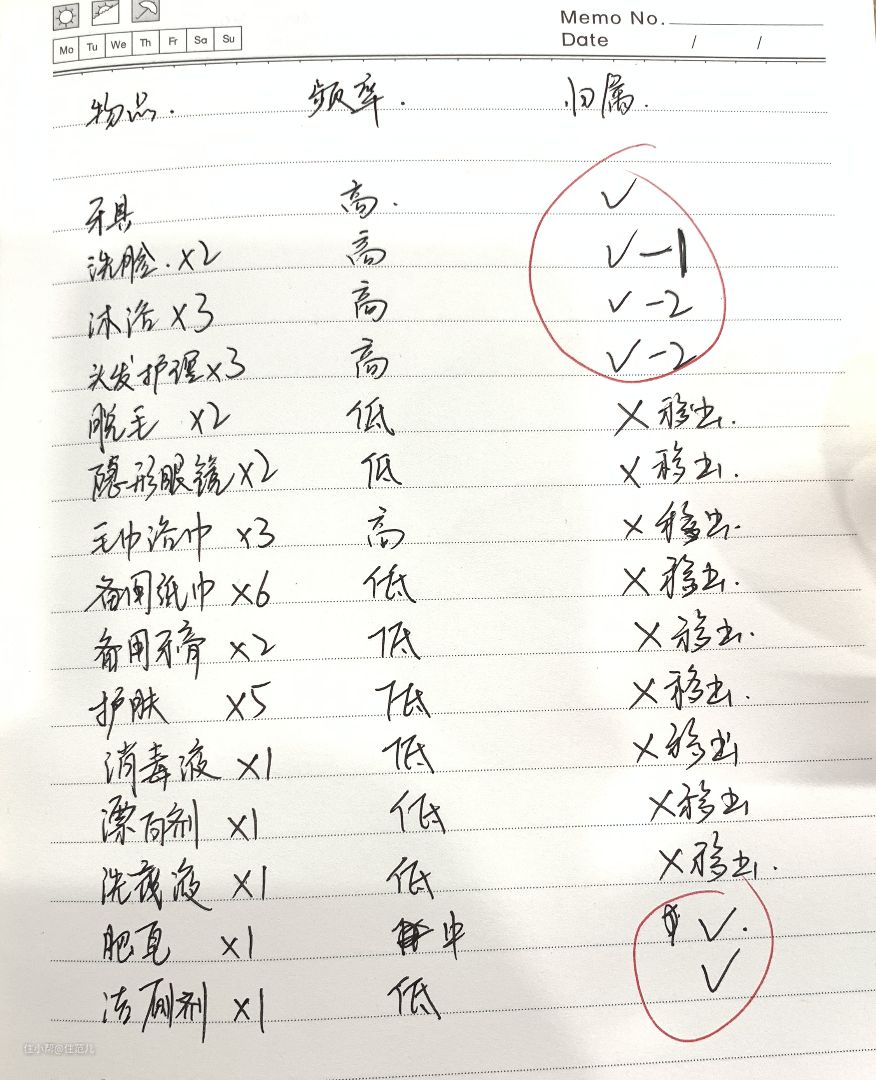 Memo No.
Mo Tu We Th Fr Sa Su
Date / /
物品. 频率. 归属.
牙具 高. ✓
洗脸.×2 高 ✓-1
沐浴×3 高 ✓-2
头发护理×3 高 ✓-2
脱毛 ×2 低 ×移出.
隐形眼镜×2 低 ×移出.
毛巾浴巾 ×3 高 ×移出.
备用纸巾 ×6 低 ×移出.
备用牙膏 ×2 低 ×移出.
护肤 ×5 低 ×移出.
消毒液 ×1 低 ×移出
漂白剂 ×1 低 ×移出
洗衣液 ×1 低 ×移出.
肥皂 ×1 中 ✓.
洁厕剂 ×1 低 ✓
住小帮@住范儿